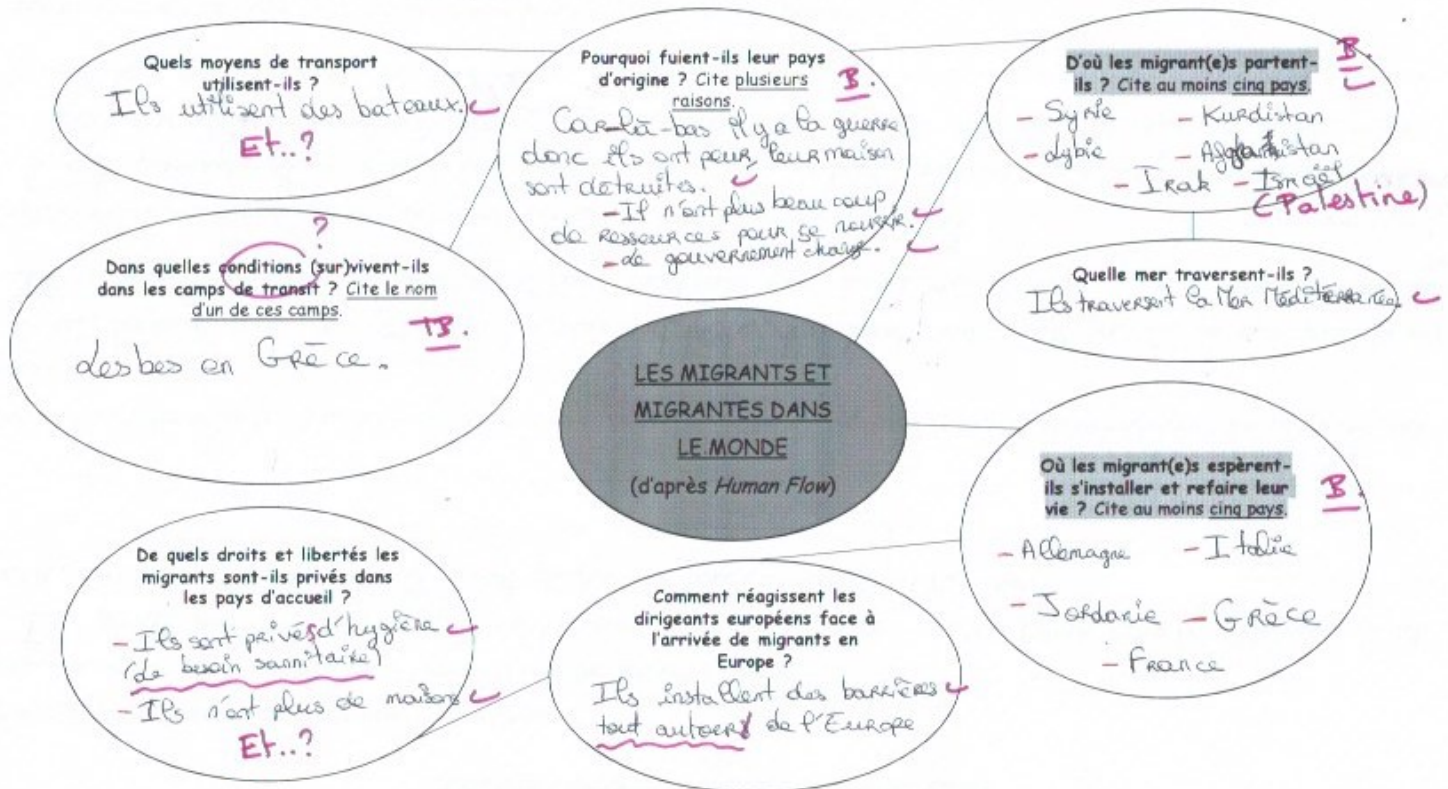 Quels moyens de transport
utilisent-ils ?
Ils utilisent des bateaux.
Et..?
Pourquoi fuient-ils leur pays
d'origine ? Cite plusieurs
raisons.
B.
Car là-bas il y a la guerre
donc ils ont peur, leur maison
sont detruites.
- Il n'ont plus beaucoup
de ressources pour se nourrir.
- Le gouvernement change.
D'où les migrant(e)s partent-
ils ? Cite au moins cinq pays.
B.
- Syrie
- Kurdistan
- Lybie
- Irak
- Israël
(Palestine)
?
Dans quelles conditions (sur)vivent-ils
dans les camps de transit ? Cite le nom
d'un de ces camps.
TB.
Lesbos en Grèce.
Quelle mer traversent-ils ?
Ils traversent la Mer Méditerranée
LES MIGRANTS ET
MIGRANTES DANS
LE MONDE
(d'après Human Flow)
Où les migrant(e)s espèrent-
ils s'installer et refaire leur
vie ? Cite au moins cinq pays.
B.
- Allemagne
- Italie
- Jordanie
- Grèce
- France
De quels droits et libertés les
migrants sont-ils privés dans
les pays d'accueil ?
- Ils sont privés d'hygiène
(de besoin sannitaire)
- Ils n'ont plus de maisons
Et..?
Comment réagissent les
dirigeants européens face à
l'arrivée de migrants en
Europe ?
Ils installent des barrières
tout autour de l'Europe